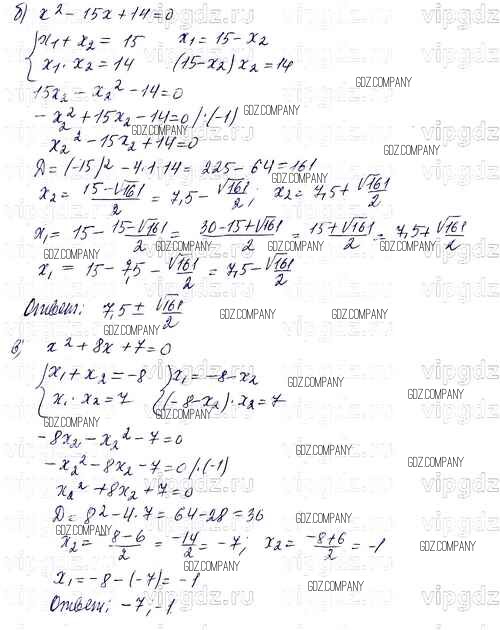 б) x² - 15x + 14 = 0
{ x₁ + x₂ = 15    x₁ = 15 - x₂
x₁ · x₂ = 14    (15 - x₂) x₂ = 14
15x₂ - x₂² - 14 = 0
- x₂² + 15x₂ - 14 = 0 /·(-1)
x₂² - 15x₂ + 14 = 0
Д = (-15)² - 4·1·14 = 225 - 64 = 161
x₂ = (15 - √161)/2 = 7,5 - √161/2; x₂ = 7,5 + √161/2
x₁ = 15 - (15 - √161)/2 = (30 - 15 + √161)/2 = (15 + √161)/2 = 7,5 + √161/2
x₁ = 15 - 7,5 - √161/2 = 7,5 - √161/2
Ответ: 7,5 ± √161/2
в) x² + 8x + 7 = 0
{ x₁ + x₂ = -8  { x₁ = -8 - x₂
x₁ · x₂ = 7    (-8 - x₂) · x₂ = 7
-8x₂ - x₂² - 7 = 0
- x₂² - 8x₂ - 7 = 0 /·(-1)
x₂² + 8x₂ + 7 = 0
Д = 8² - 4·7 = 64 - 28 = 36
x₂ = (8 - 6)/2 = -14/2 = -7; x₂ = (-8 + 6)/2 = -1
x₁ = -8 - (-7) = -1
Ответ: -7; -1